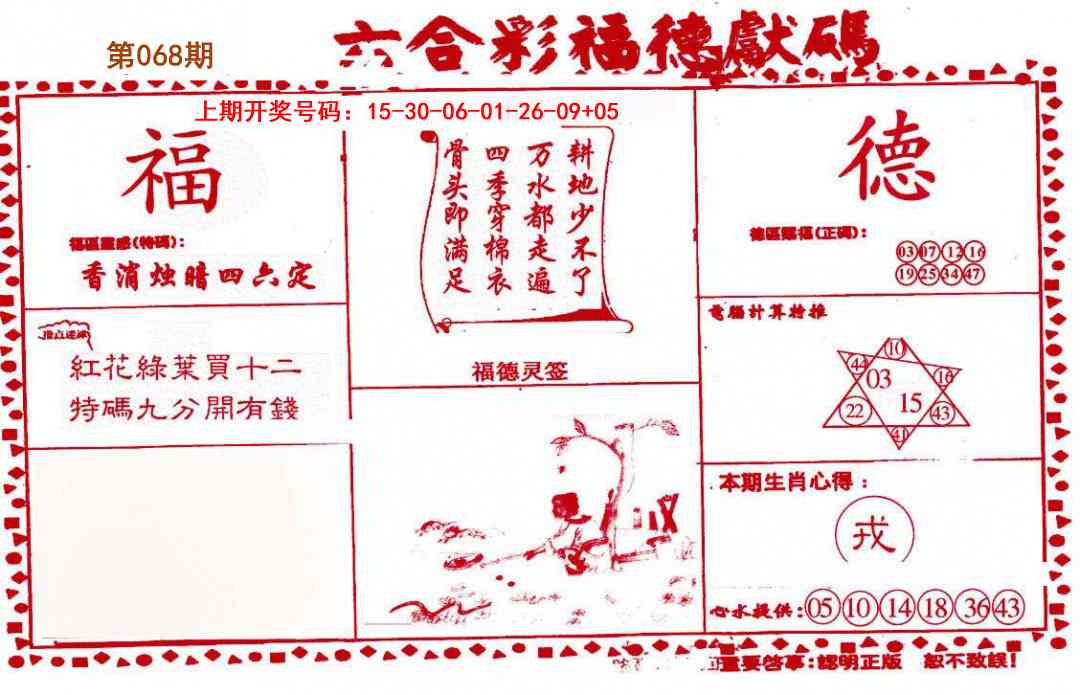 六合彩福德獻碼
第068期
上期开奖号码：15-30-06-01-26-09+05
福
福區靈感(特碼)：
香消烛暗四六定
紅花綠葉買十二
特碼九分開有錢
耕地少不了
万水都走遍
四季穿棉衣
骨头即满足
福德灵签
德
德區賜福(正碼)：
03 07 12 16
19 25 34 47
電腦計算特推
10
44 03 16
22 15 43
41
本期生肖心得：
戎
心水提供：05 10 14 18 36 43
重要啓事：認明正版 恕不致誤！